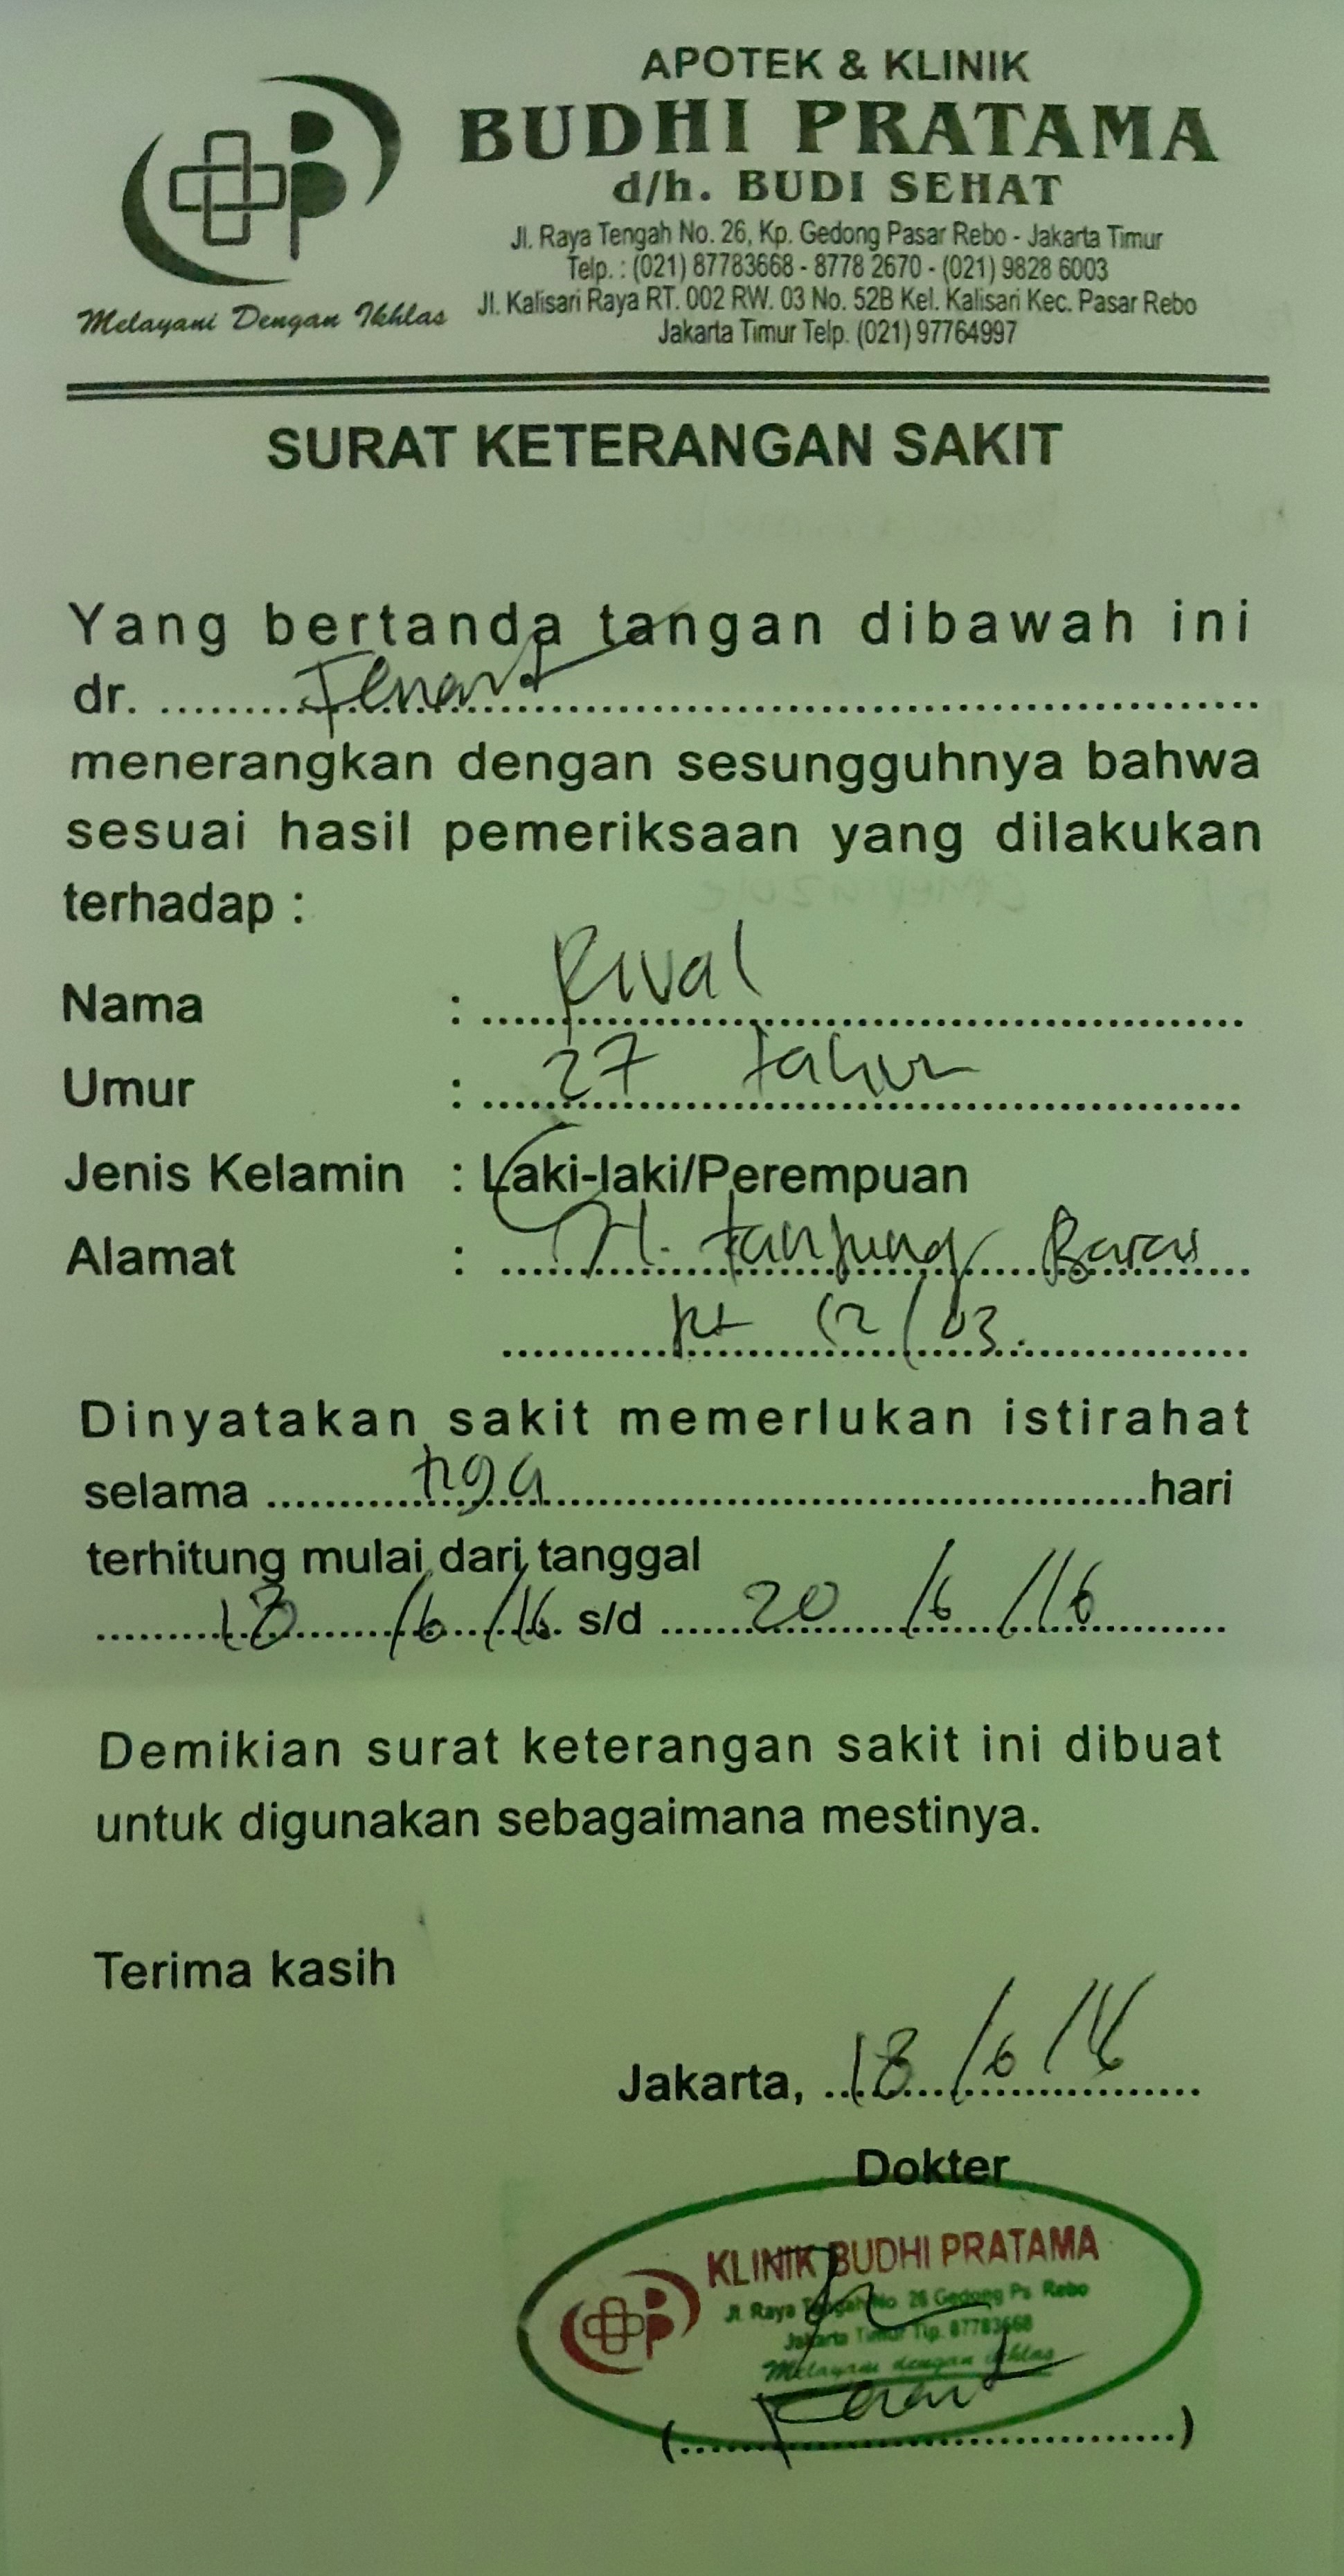 APOTEK & KLINIK
BUDHI PRATAMA
d/h. BUDI SEHAT
Jl. Raya Tengah No. 26, Kp. Gedong Pasar Rebo - Jakarta Timur
Telp. : (021) 87783668 - 8778 2670 - (021) 9828 6003
Jl. Kalisari Raya RT. 002 RW. 03 No. 52B Kel. Kalisari Kec. Pasar Rebo
Jakarta Timur Telp. (021) 97764997
Melayani Dengan Ikhlas
SURAT KETERANGAN SAKIT
Yang bertanda tangan dibawah ini
dr. ..............................
menerangkan dengan sesungguhnya bahwa
sesuai hasil pemeriksaan yang dilakukan
terhadap :
Nama : Rival
Umur : 27 tahun
Jenis Kelamin : Laki-laki/Perempuan
Alamat : Jl. tanjung
rt 12/03.
Dinyatakan sakit memerlukan istirahat
selama tiga hari
terhitung mulai dari tanggal
18/6/16 s/d 20/6/16
Demikian surat keterangan sakit ini dibuat
untuk digunakan sebagaimana mestinya.
Terima kasih
Jakarta, 18/6/16
Dokter
KLINIK BUDHI PRATAMA
Jl. Raya Tengah No. 26 Gedong Ps. Rebo
Jakarta Timur Tlp. 87783668
Melayani dengan ikhlas
(..............................)